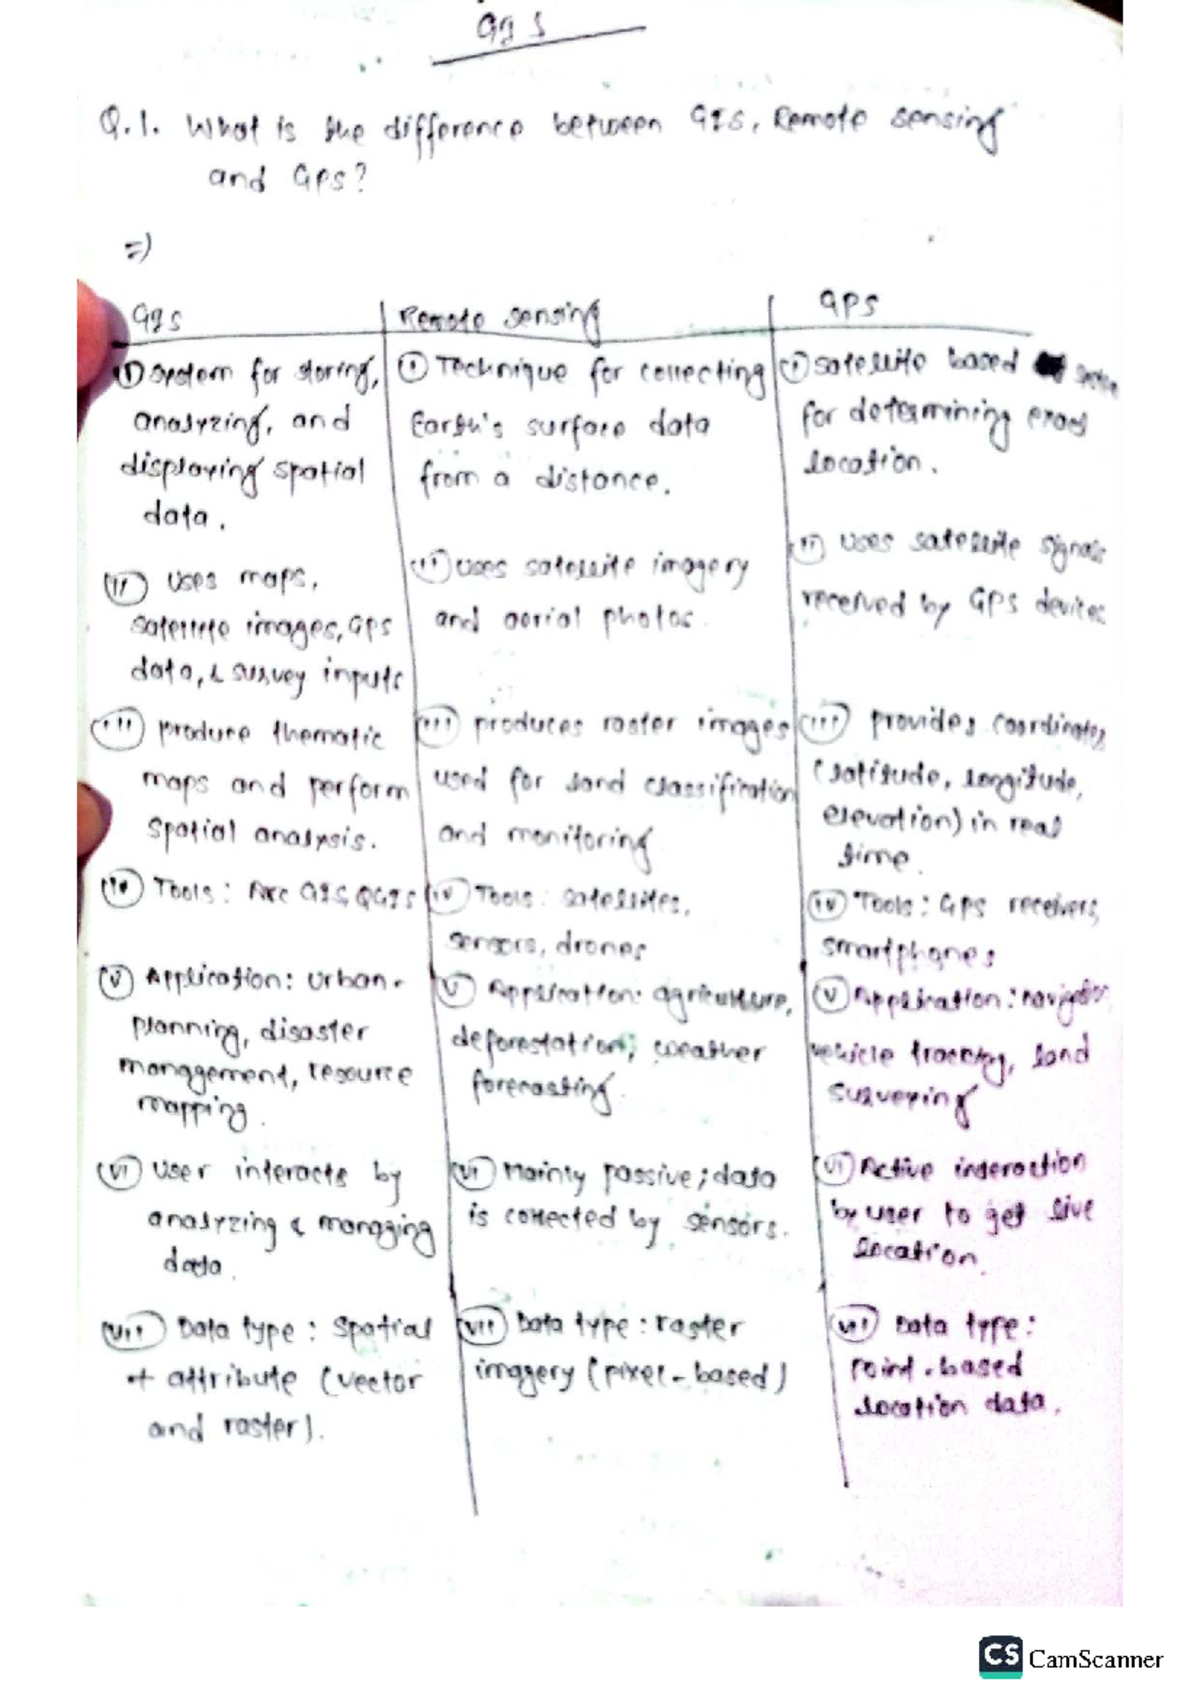 GIS
Q.1. What is the difference between GIS, Remote sensing
and GPS?
=)
GIS
(i) System for storing,
analyzing, and
displaying spatial
data.
(ii) Uses maps,
satellite images, GPS
data, & survey inputs
(iii) produce thematic
maps and perform
spatial analysis.
(iv) Tools: Arc GIS, QGIS
(v) Application: urban-
planning, disaster
management, resource
mapping.
(vi) User interacts by
analyzing & managing
data.
(vii) Data type: spatial
+ attribute (vector
and raster).
Remote sensing
(i) Technique for collecting
Earth's surface data
from a distance.
(ii) uses satellite imagery
and aerial photos.
(iii) produces raster images
used for land classification
and monitoring
(iv) Tools: satellites,
sensors, drones
(v) Application: agriculture,
deforestation, weather
forecasting.
(vi) Mainly passive; data
is collected by sensors.
(vii) Data type: raster
imagery (pixel-based)
GPS
(i) satellite based
for determining exact
location.
(ii) uses satellite signals
received by GPS devices
(iii) provides coordinates
(latitude, longitude,
elevation) in real
time.
(iv) Tools: GPS receivers,
smartphones
(v) Application: navigation
vehicle tracking, land
surveying
(vi) Active interaction
by user to get live
location.
(vii) Data type:
point-based
location data.
CS CamScanner